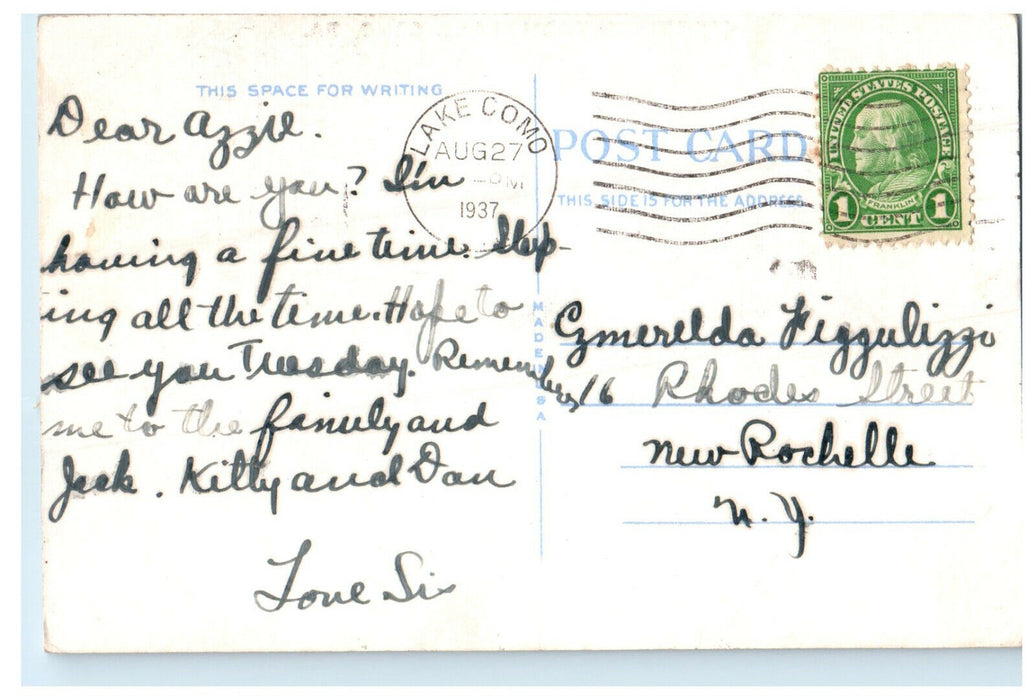 THIS SPACE FOR WRITING
Dear Azzie.
How are you? I'm
having a fine time. Slep-
ing all the time. Hope to
see you Tuesday. Remember
me to the family and
Jack. Kitty and Dan
Love Sis
LAKE COMO
AUG 27
PM
1937
POST CARD
THIS SIDE IS FOR THE ADDRESS
UNITED STATES POSTAGE
FRANKLIN
1 CENT 1
MADE IN USA
Ezmerelda Figgulizzi
16 Rhodes Street
New Rochelle
N. Y.